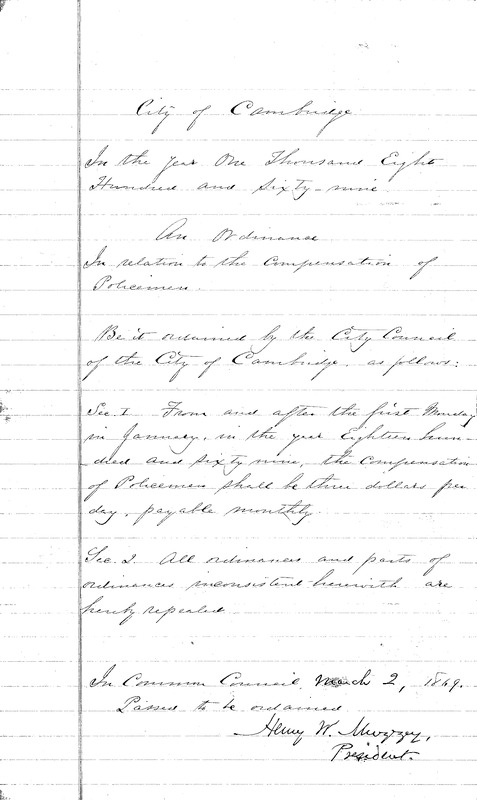 City of Cambridge
In the year One Thousand Eight
Hundred and Sixty-nine
An Ordinance
In relation to the Compensation of
Policemen.
Be it ordained by the City Council
of the City of Cambridge, as follows:
Sec. 1. From and after the first Monday
in January, in the year Eighteen hun-
-dred and Sixty nine, the compensation
of Policemen shall be three dollars per
day, payable monthly.
Sec. 2. All ordinances and parts of
ordinances inconsistent herewith are
hereby repealed
In Common Council, March 2, 1869.
Passed to be ordained
Henry W. Muzzey,
President.